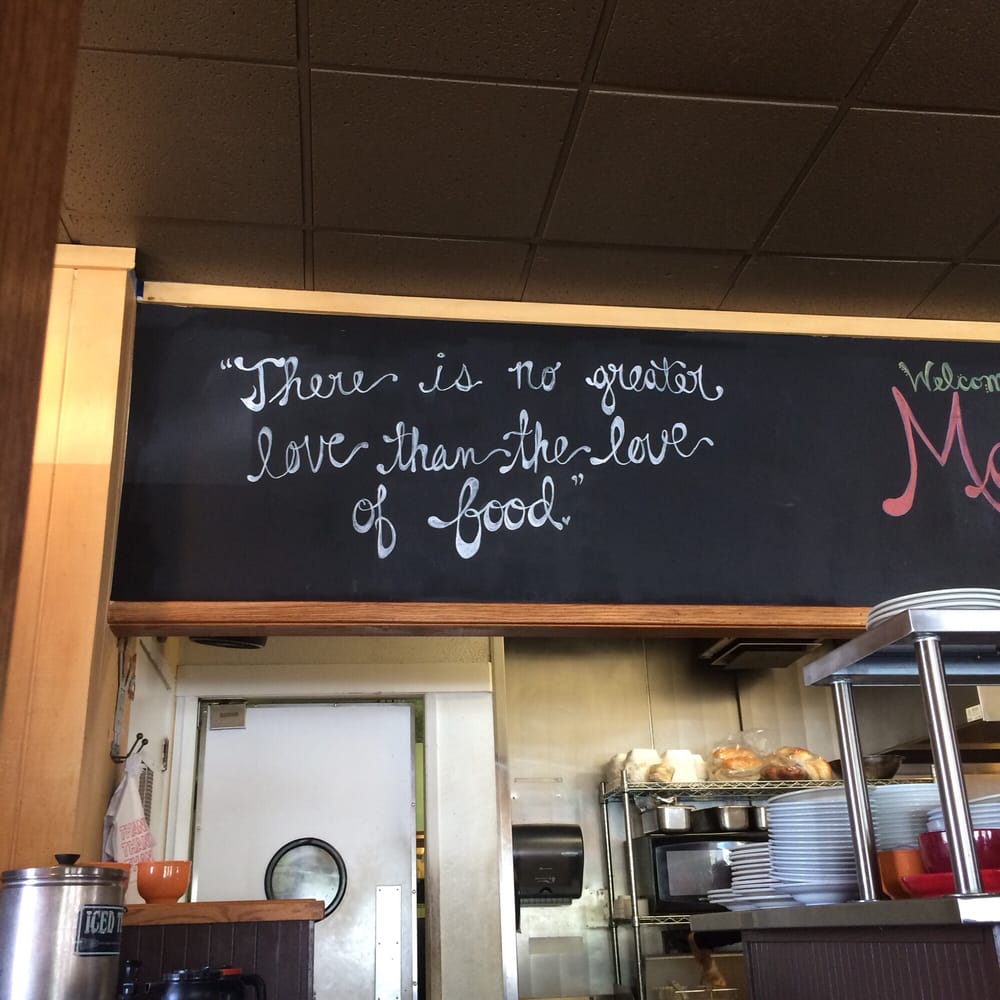 “There is no greater
love than the love
of food.”
Welcom
ICED T